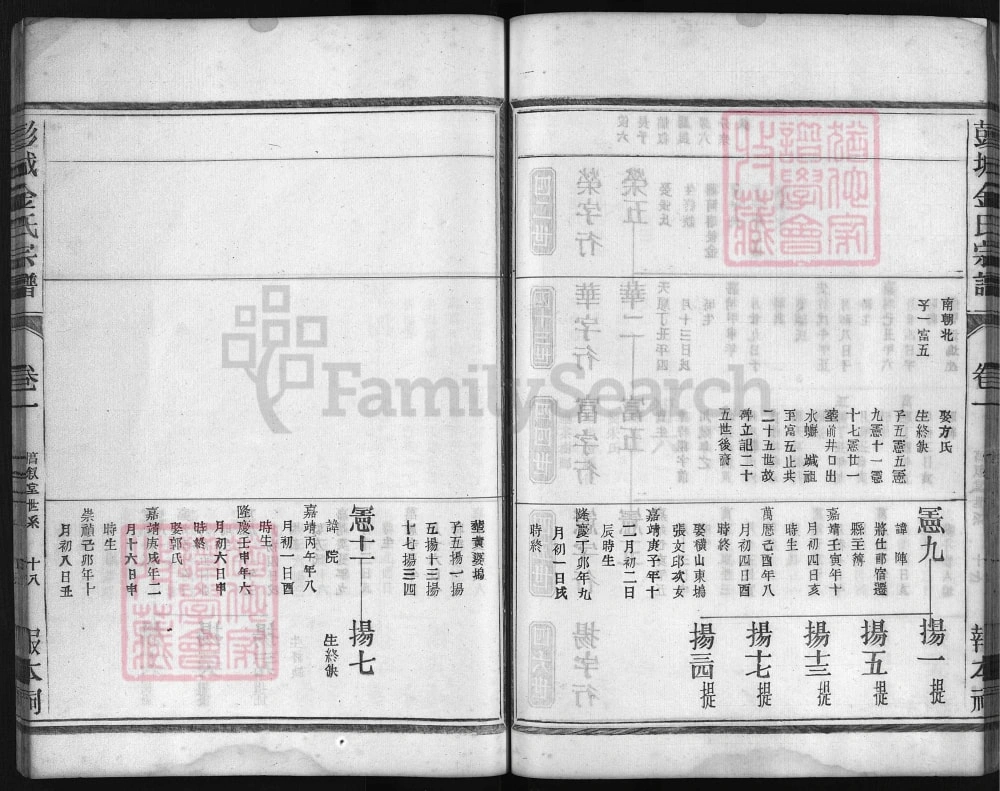 彭城金氏宗譜
卷一
報本祠
南朝北
子一富五
娶方氏
生終缺
子五憲五憲
九憲十一憲
十七憲廿一
墓前井口出
水蠟 城祖
至富五止共
二十五世故
碑立記二十
五世後裔
憲九
諱 陣
將仕郎宿遷
縣主簿
嘉靖壬寅年十
月初四日亥
時生
萬歷己酉年八
月初四日酉
時終
娶橫山東塢
張文邱次女
嘉靖庚子年十
二月初二日
辰時生
隆慶丁卯年九
月初一日戌
時終
揚一 提
揚五 提
揚十三 提
揚十七 提
揚三四 提
墓黃婆塢
子五揚一揚
五揚十三揚
十七揚三四
憲十一
諱 院
嘉靖丙午年八
月初一日酉
時生
隆慶壬申年六
月初六日申
時終
娶郭氏
嘉靖庚戌年二
月十六日申
時生
崇禎己卯年十
月初八日丑
揚七
生終缺
彭城金氏宗譜
卷一
敘堂世系
十八
報本祠
猶他家譜學會收藏
猶他家譜學會收藏
FamilySearch